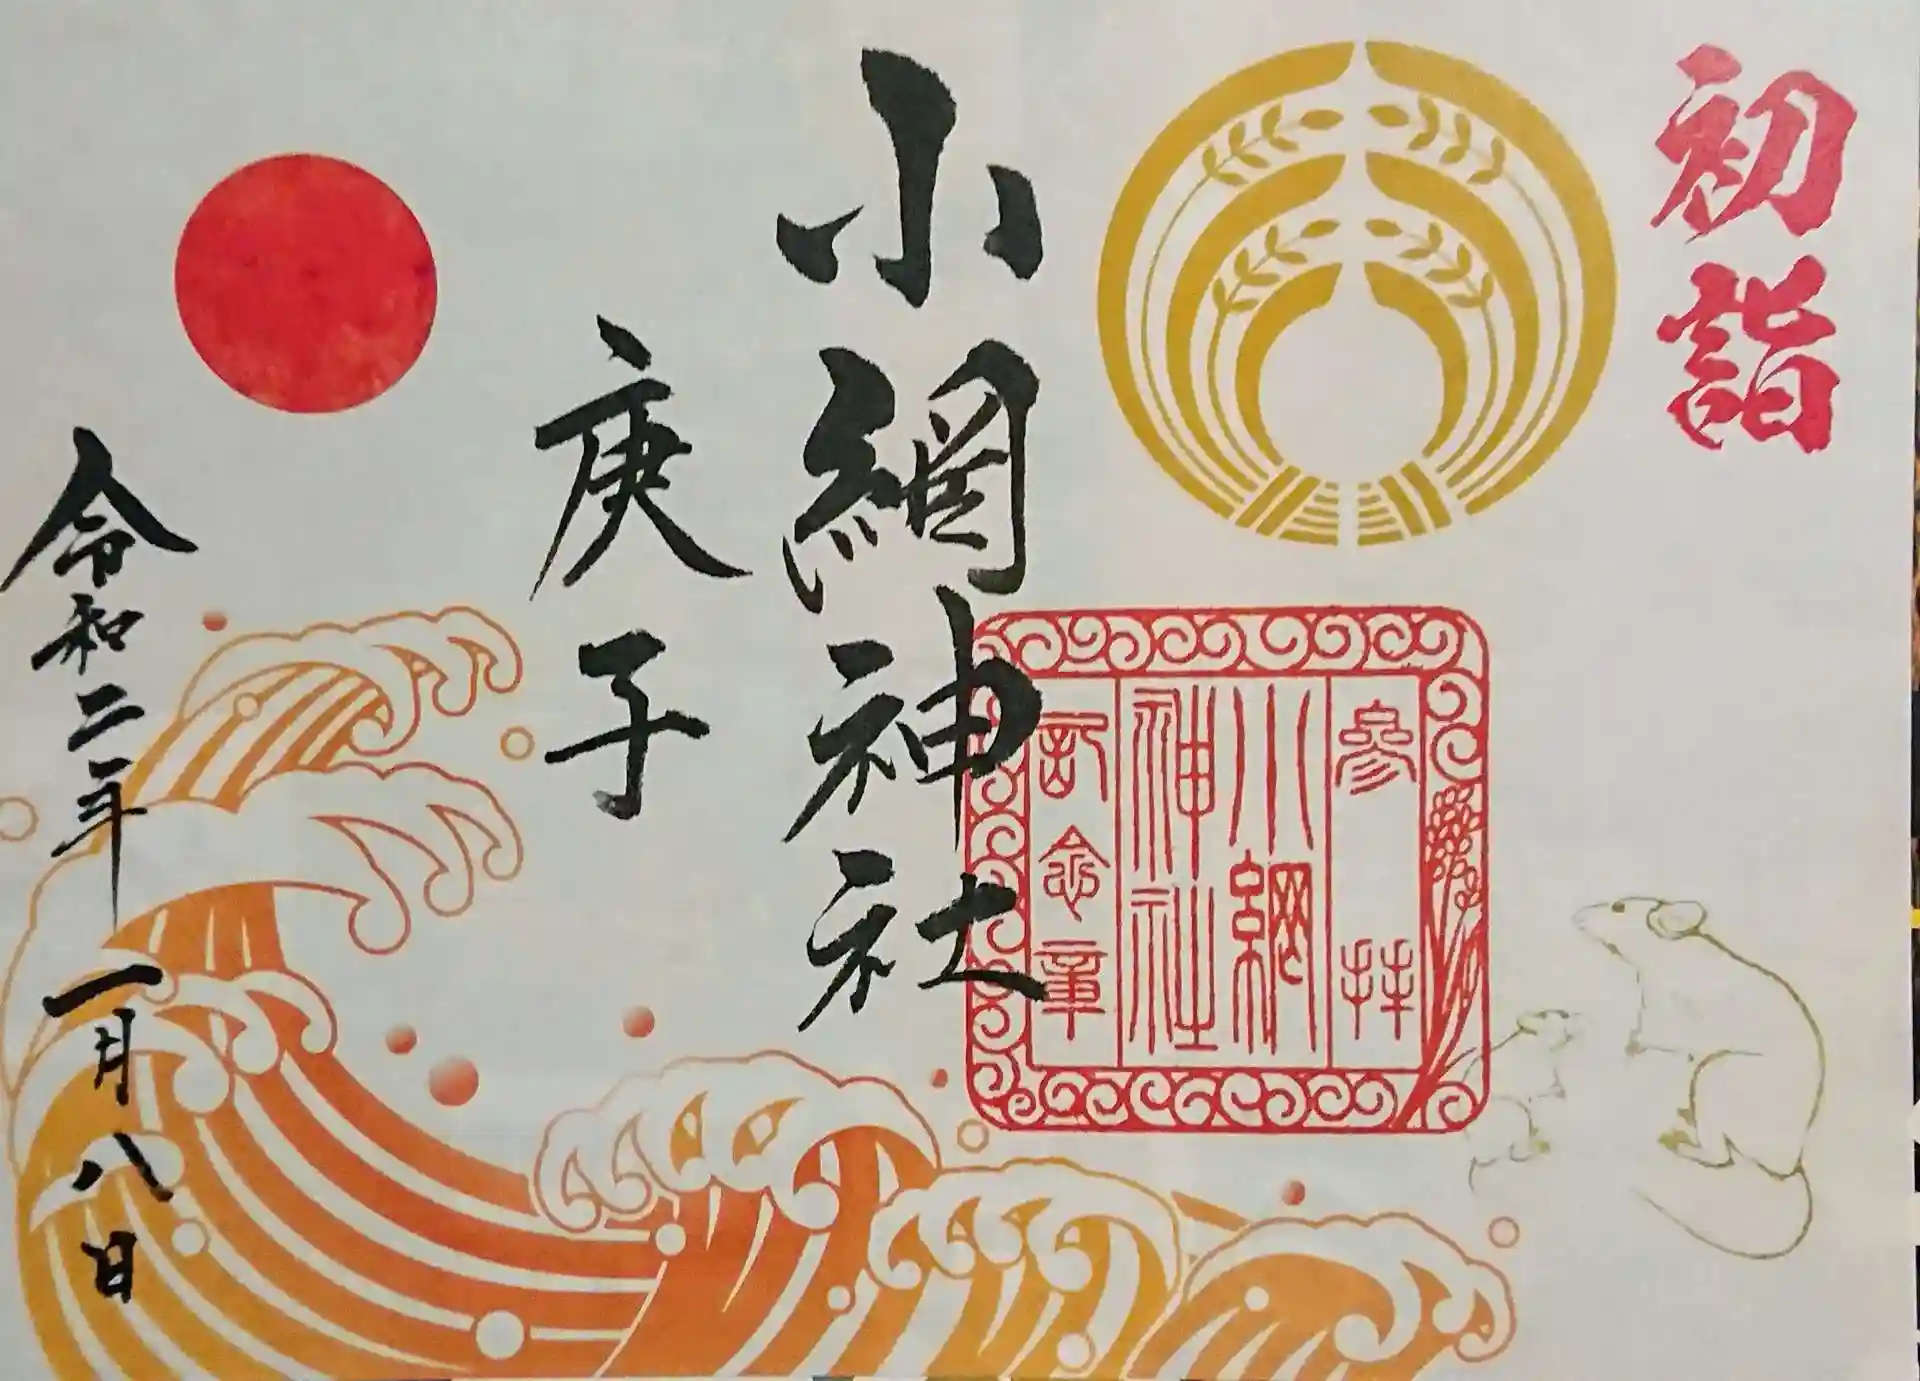 初詣
小網神社
庚子
令和二年一月八日
参拝
小網
神社
記念章